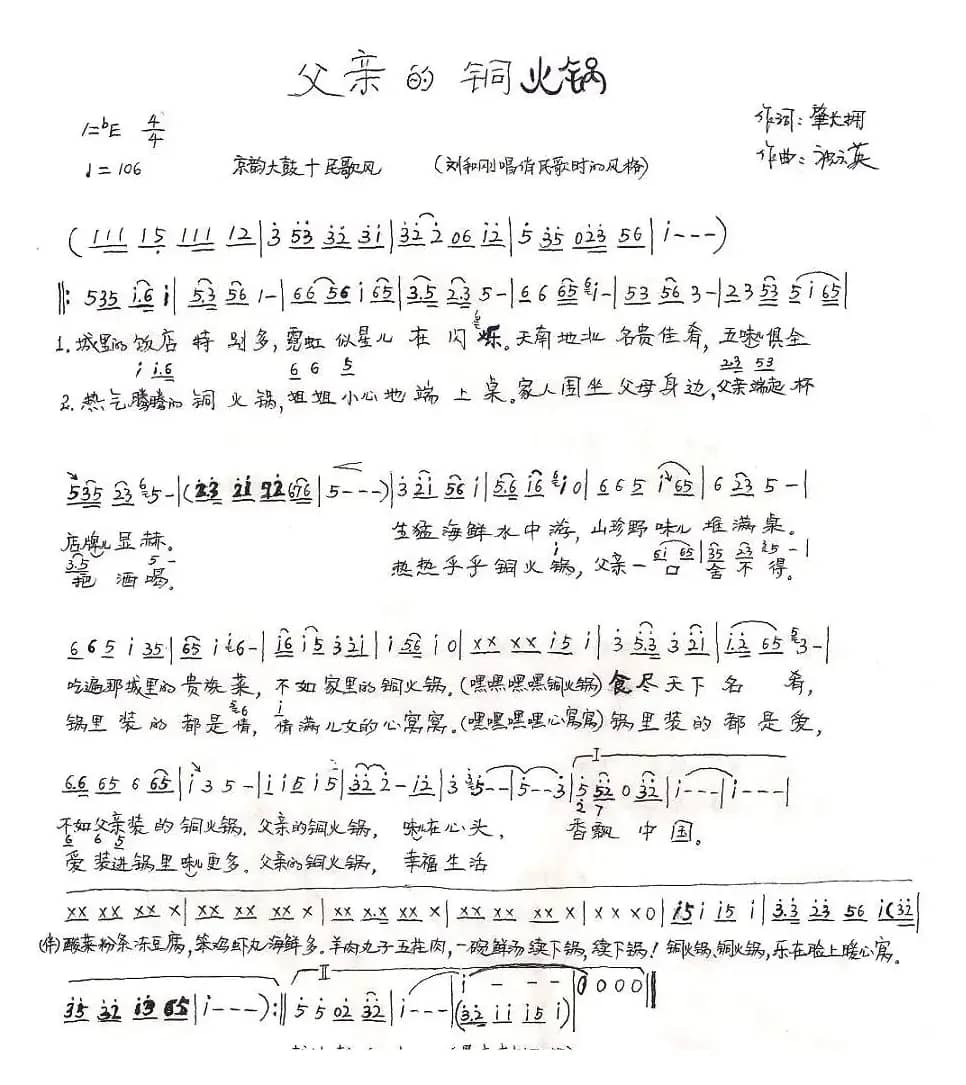 父亲的铜火锅
1=bE 4/4
作词: 肇长拥
♩=106 京韵大鼓+民歌风 (刘和刚唱俏民歌时的风格)
作曲:
( 111 15 111 12 | 3 53 32 31 | 32 2 06 12 | 5 35 023 56 | i - - - )
‖: 535 i.6 i | 53 56 1 - | 66 56 i 65 | 3.5 2.3 5 - | 6 6 65 i - | 53 56 3 - | 23 53 5 i 65 |
1. 城里的饭店特别多, 霓虹似星儿在闪烁。天南地北名贵佳肴, 五味俱全
i i.6 6 6 5 23 53
2. 热气腾腾的铜火锅, 姐姐小心地端上桌。家人围坐父母身边, 父亲端起杯
535 23 5 - | ( 23 2i 72 676 | 5 - - - ) | 3 2i 56 i | 5.6 i6 i 0 | 6 6 5 i 65 | 6 23 5 - |
店牌儿显赫。 生猛海鲜水中游, 山珍野味儿堆满桌。
3.5 5 - i 6i 65 | 35 23 5 - |
把酒喝。 热热乎乎铜火锅, 父亲一口舍不得。
6 6 5 i 35 | 65 i 6 - | i6 i5 3 2i | i 56 i 0 | xx xx i 5 i | 3 5.3 3 2i | i.2 65 3 - |
吃遍那城里的贵族菜, 不如家里的铜火锅。(嘿嘿嘿嘿铜火锅) 食尽天下名肴,
6 i
锅里装的都是情, 情满儿女的心窝窝。(嘿嘿嘿嘿心窝窝) 锅里装的都是爱,
I
6.6 65 6 65 | i 3 5 - | i i5 i5 | 32 2 - i2 | 3 5 - - | 5 - - 3 | 5 52 0 32 | i - - - | i - - - |
2 7
不如父亲装的铜火锅. 父亲的铜火锅, 味在心头, 香飘中国。
6 6 5
爱装进锅里味儿更多. 父亲的铜火锅, 幸福生活
xx xx xx x | xx xx xx x | xx x.x xx x | xx xx xx x | x x x 0 | i5 i i5 i | 3.3 23 56 i ( 32 |
(伴)酸菜粉条冻豆腐, 笨鸡虾丸海鲜多. 羊肉丸子五花肉, 一碗鲜汤续下锅, 续下锅! 铜火锅、铜火锅, 乐在脸上暖心窝。
II
35 32 i3 65 | i - - - ) :‖ 5 5 02 32 | i - - - | i - - - | 0 0 0 0 0 ‖
( 3.2 i i i5 i )